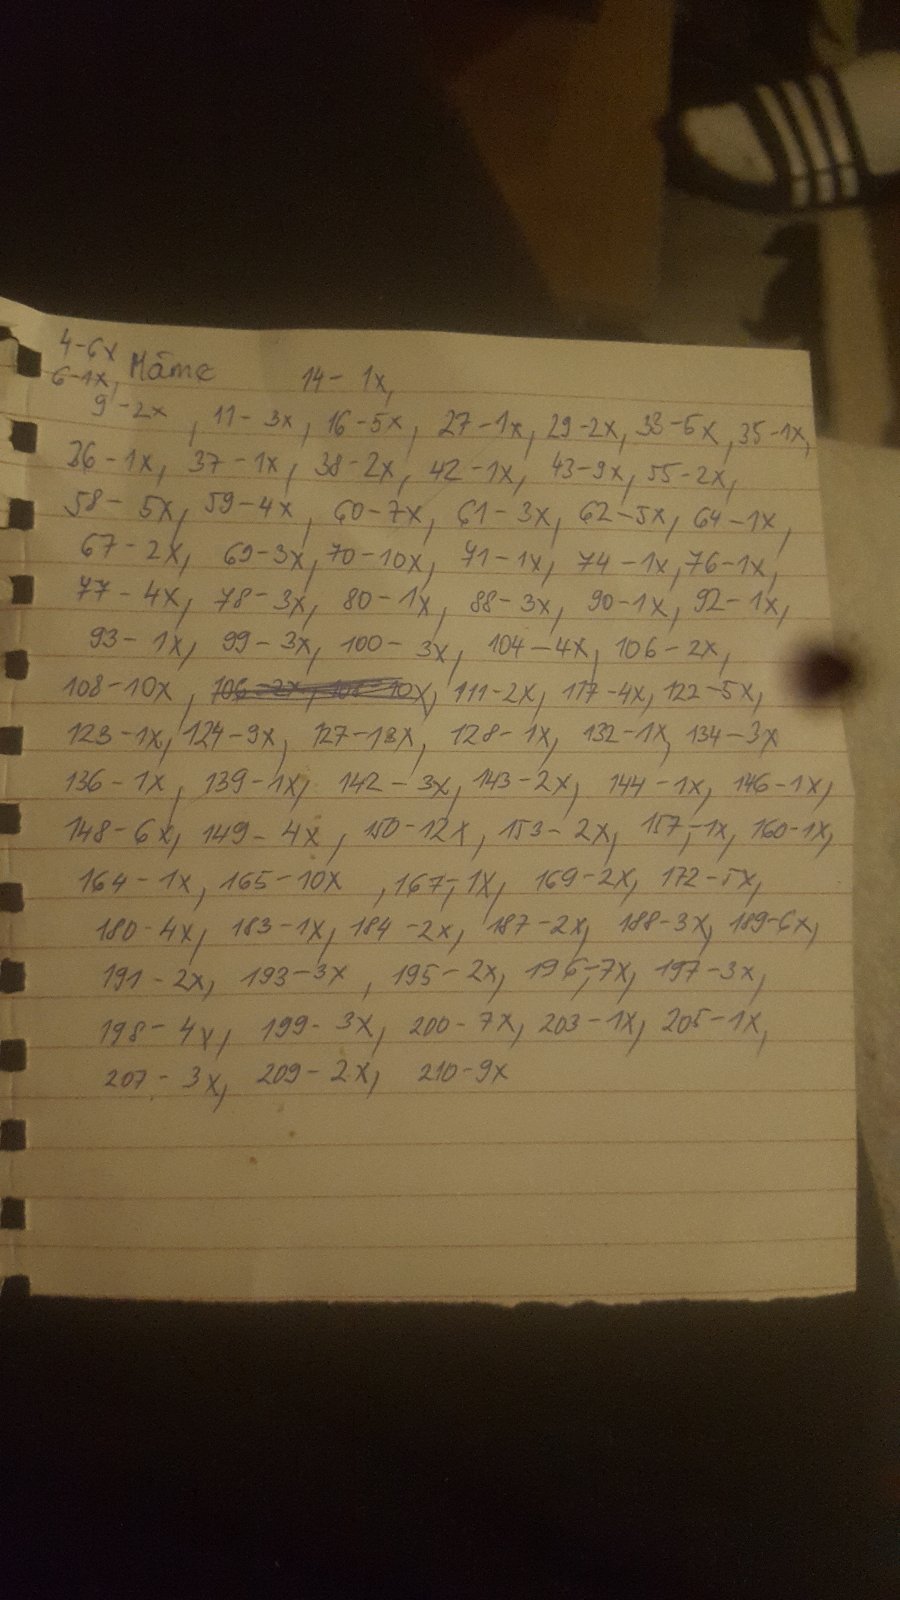 4-6x
6-1x, Máme 14- 1x,
9 -2x , 11- 3x, 16-5x, 27-1x, 29-2x, 33-6x, 35-1x,
36-1x, 37-1x, 38-2x, 42-1x, 43-9x, 55-2x,
58- 5x, 59-4x , 60-7x, 61-3x, 62-5x, 64-1x,
67-2x, 69-3x, 70-10x, 71-1x, 74-1x, 76-1x,
77- 4x, 78-3x, 80-1x, 88-3x, 90-1x, 92-1x,
93- 1x, 99-3x, 100- 3x, 104-4x, 106-2x,
108-10x , 111-2x, 117-4x, 122-5x,
123-1x, 124-9x, 128-1x, 132-1x, 134-3x
136-1x , 139-1x, 142-3x, 143-2x, 144-1x, 146-1x,
148-6x, 149-4x , 150-12x , 153-2x, 157-1x, 160-1x,
164-1x, 165-10x , 167-1x, 169-2x, 172-5x,
180-4x, 183-1x, 184-2x, 187-2x, 188-3x, 189-6x,
191-2x, 193-3x , 195-2x, 196-7x, 197-3x,
198- 4x, 199- 3x, 200-7x, 203-1x, 205-1x,
207- 3x, 209-2x, 210-9x